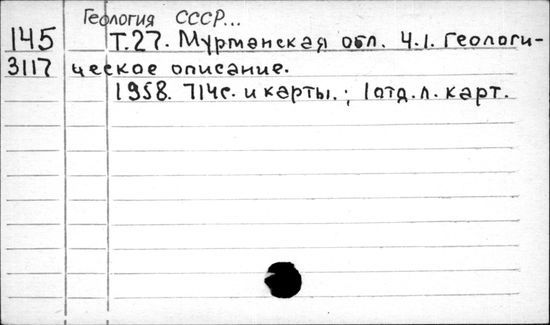 Геология СССР...
145 Т.27. Мурманская обл. Ч.1. Геологи-
3117 ческое описание.
1958. 714с. и карты.; 1 отд. л. карт.